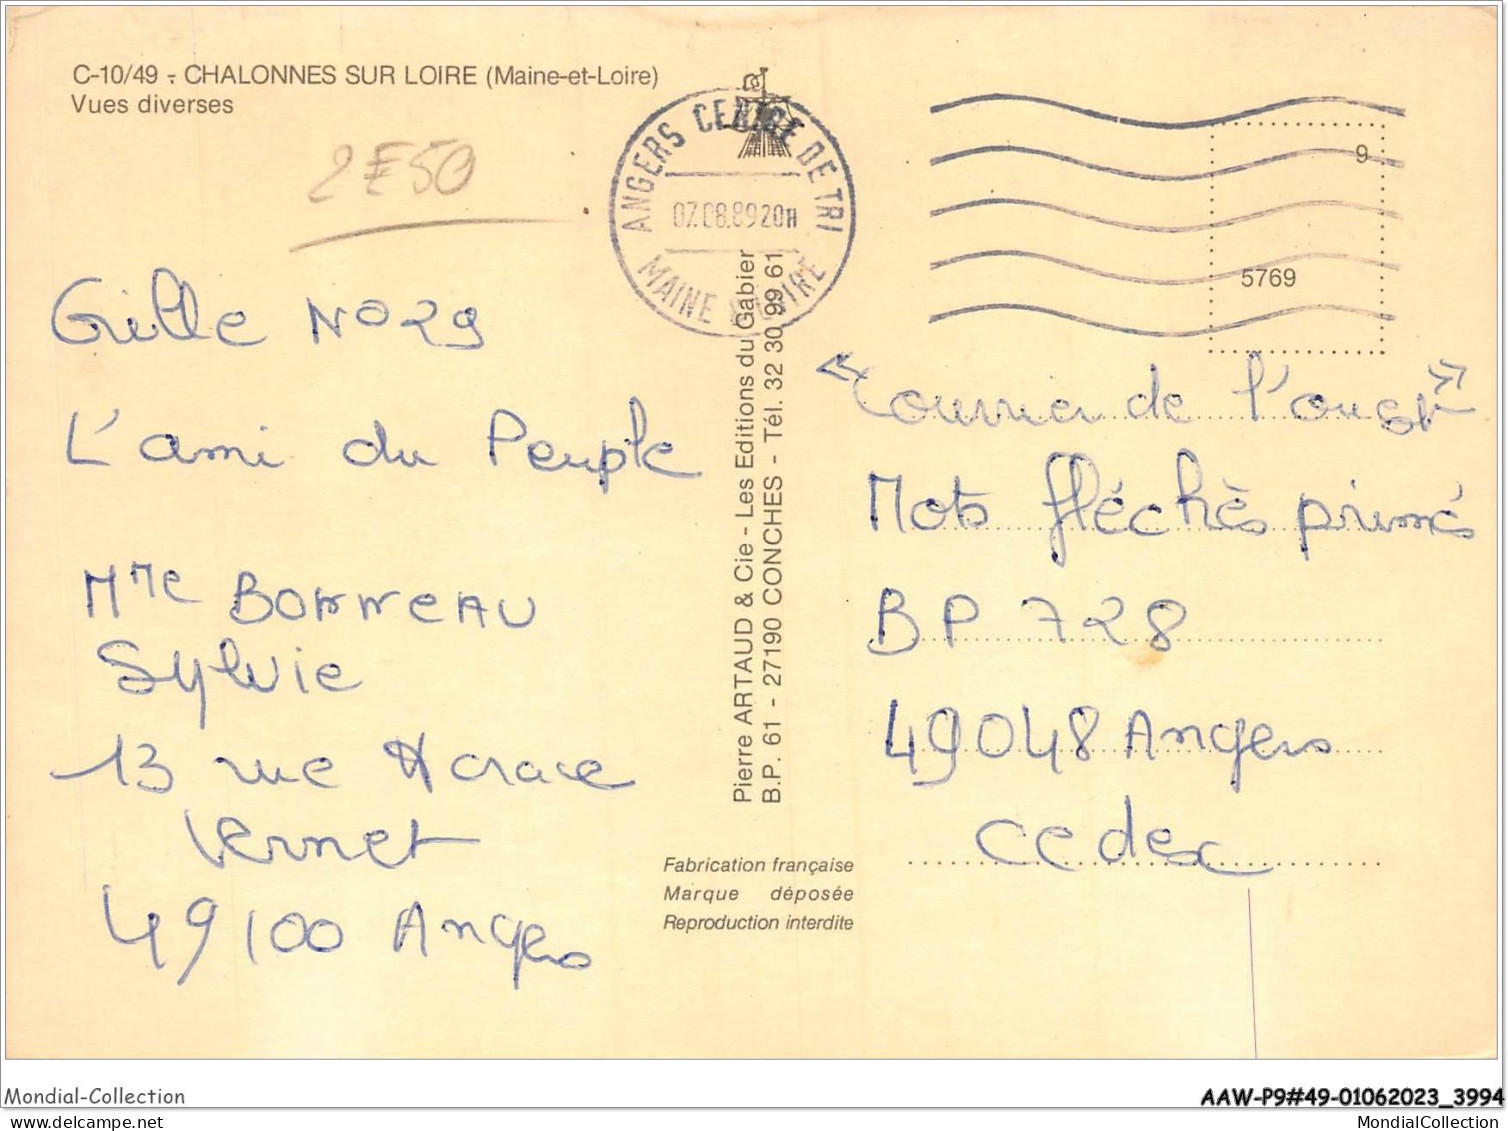 C-10/49 - CHALONNES SUR LOIRE (Maine-et-Loire)
Vues diverses
2E50
ANGERS CENTRE DE TRI
07.08.89 20H
MAINE & LOIRE
9
5769
Grille N° 29
L'ami du Peuple
Mme BONNEAU
Sylvie
13 rue Horace
Vernet
49100 Angers
Pierre ARTAUD & Cie - Les Editions du Gabier
B.P. 61 - 27190 CONCHES - Tél. 32 30 99 61
Fabrication française
Marque déposée
Reproduction interdite
"Courrier de l'ouest"
Mots fléchès primés
BP 728
49048 Angers
cedex
Mondial-Collection
AAW-P9#49-01062023_3994
MondialCollection